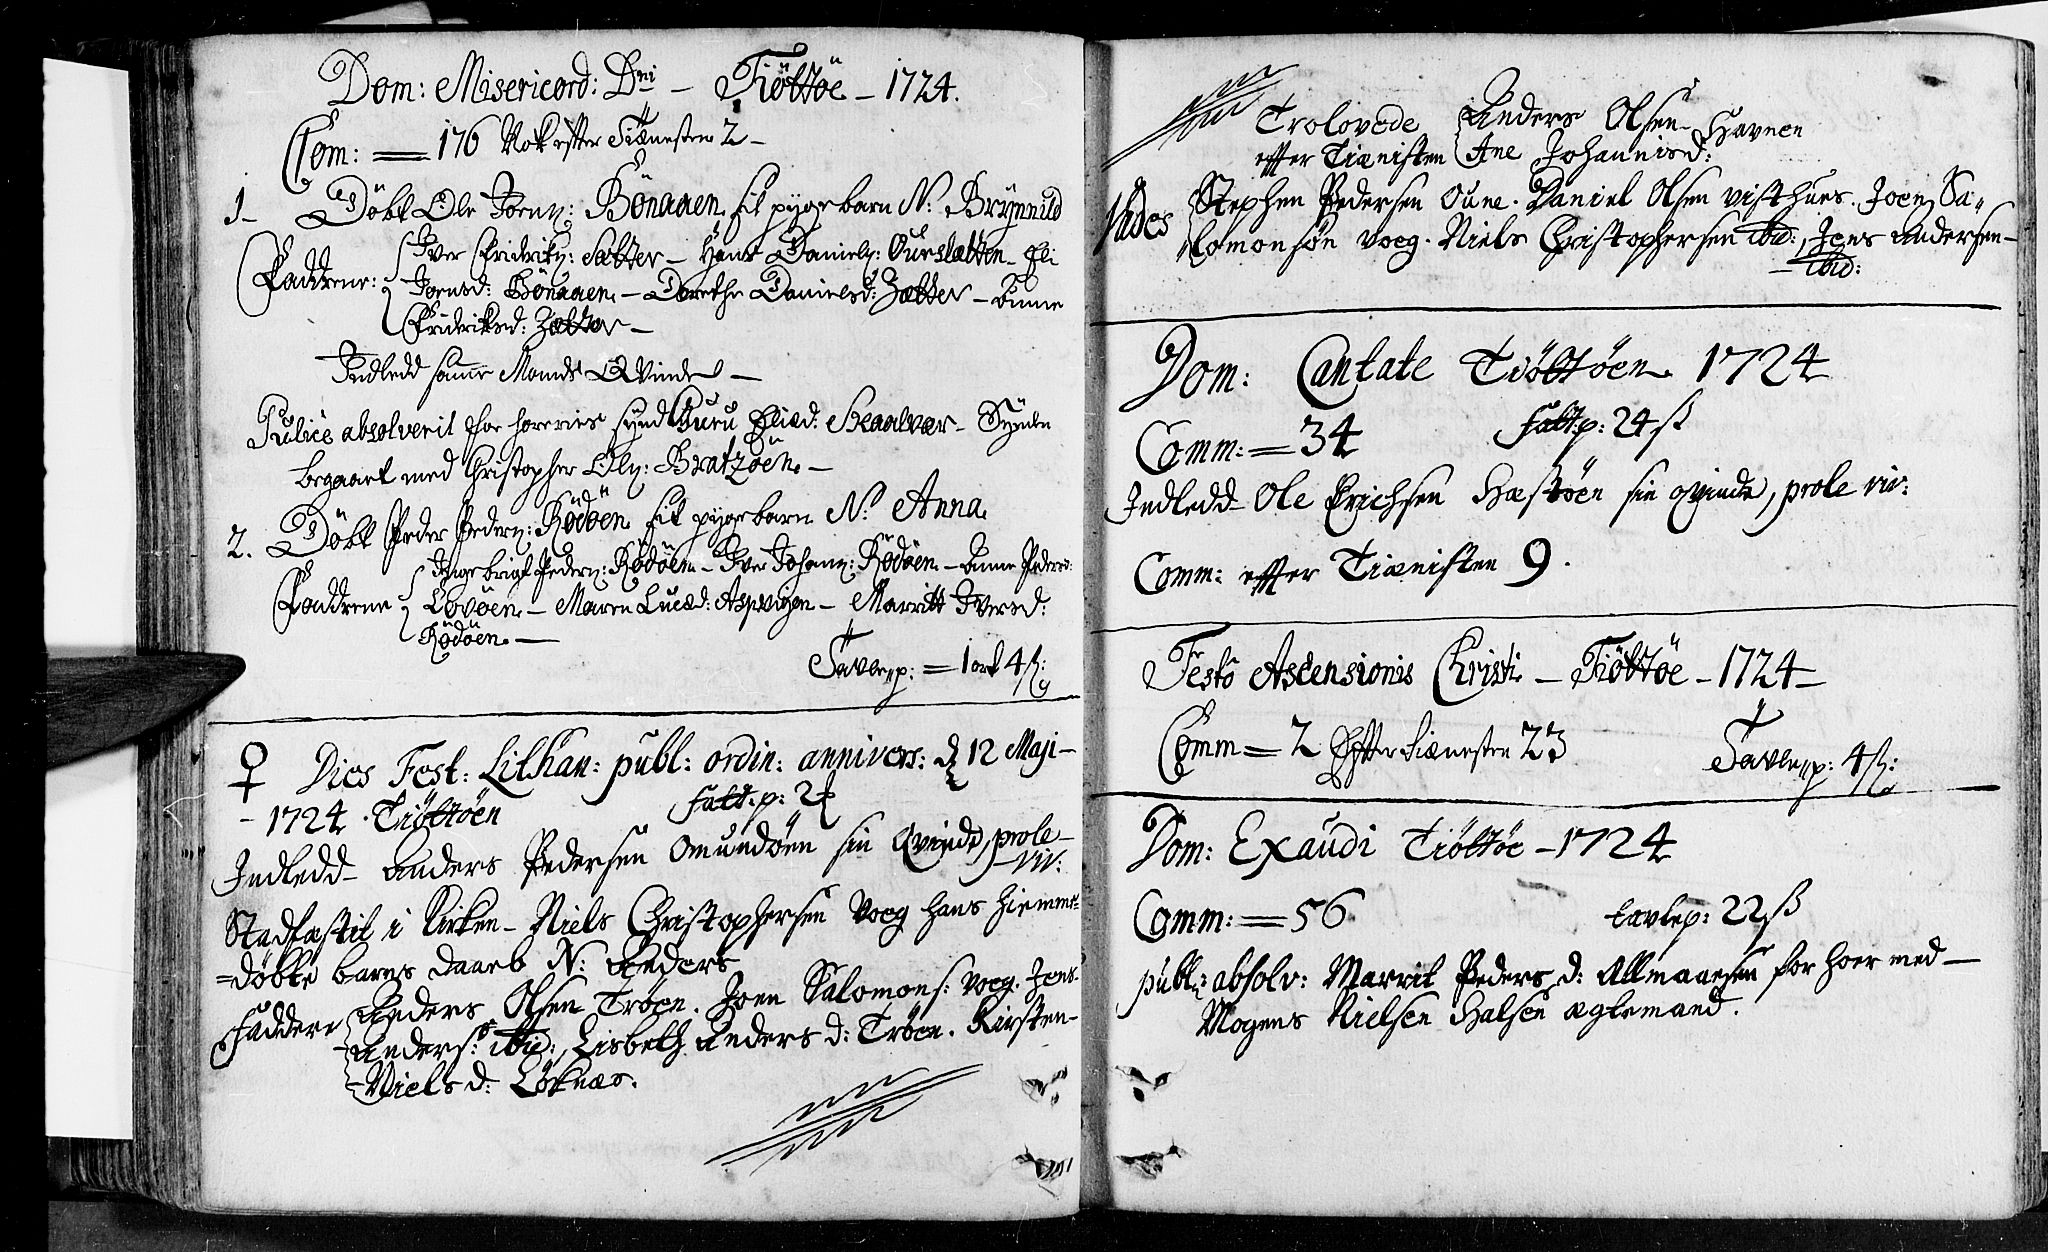 Dom: Misericord: Dni – Tiöttöe – 1724.
Com: = 176 Nok effter Tiænesten 2 –
1 – Döbt Ole Joens: Bönaaen fit pygebarn N: Brÿnnild
Faddrene: Iver Fridrichs: Sætter – Hans Daniels: Ourslætten – Eli
Joensd: Bönaaen – Dorethe Danielsd: Zætter – Anne
Fridrichsd: Zætter –
Indledd samme Mands Qvinde –
Pulice absolverit for horeries synd Guru Eliæd: Skaalvær – Synden
begaaet med Christopher Ols: Bratzöen –
2. Döbt Peder Peders: Rödöen fit pygebarn N: Anna
Faddrene Ingebrigt Peders: Rödöen – Iver Johans: Rödöen – Anne Peders:
Lovöen – Maren Lucæd: Aspvigen – Marritt Iversd:
Rödöen –
Tavlep: = 1 ort 4 ß:
♀ Dies Fest: Lithan: publ: ordin: annivers: d 12 Maji –
– 1724. Tiöttöen Fatt: p: 2
Indledd – Anders Pedersen Omundöen sin qvinde, prole –
– viv:
Stadfæstit i Kirken – Niels Christophersen Voeg hans hiemme=
=döbte barns daab N: Anders
Faddere Anders Olsen Tröen. Joen Salomons: Voeg. Jens
Anders: ibid: Lisbeth Anders d: Tröen. Kirsten –
– Niels d: Löknæs.
Trolovede Anders Olsen – Havnen
effter Tiænisten Ane Johannisd:
Vades Stephen Pedersen Oune. Daniel Olsen Visthues. Joen Sa„
„lomonsön voeg. Niels Christophersen ibid: Jens Andersen –
– ibid:
Dom: Cantate Tiöttöen 1724
Comm: = 34 Fatt: p: 24 ß
Indledd – Ole Erichsen Hæstöen sin qvinde, prole viv:
Comm: effter Tiænisten 9.
Festo Ascensionis Christi – Tiöttöe – 1724 –
Comm = 2 Effter Tiænesten 23 Tavlep: 4 ß:
Dom: Exaudi Tiöttöe – 1724
Comm: = 56 tavlep: 22 ß
publ: absolv: Marrit Peders d: Allmaaesen for hoer med –
Mogens Nielsen Halsen ægtemand.